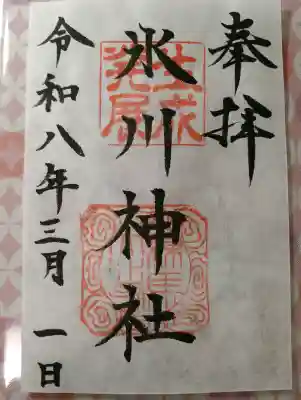 奉拝
氷川神社
令和八年三月一日